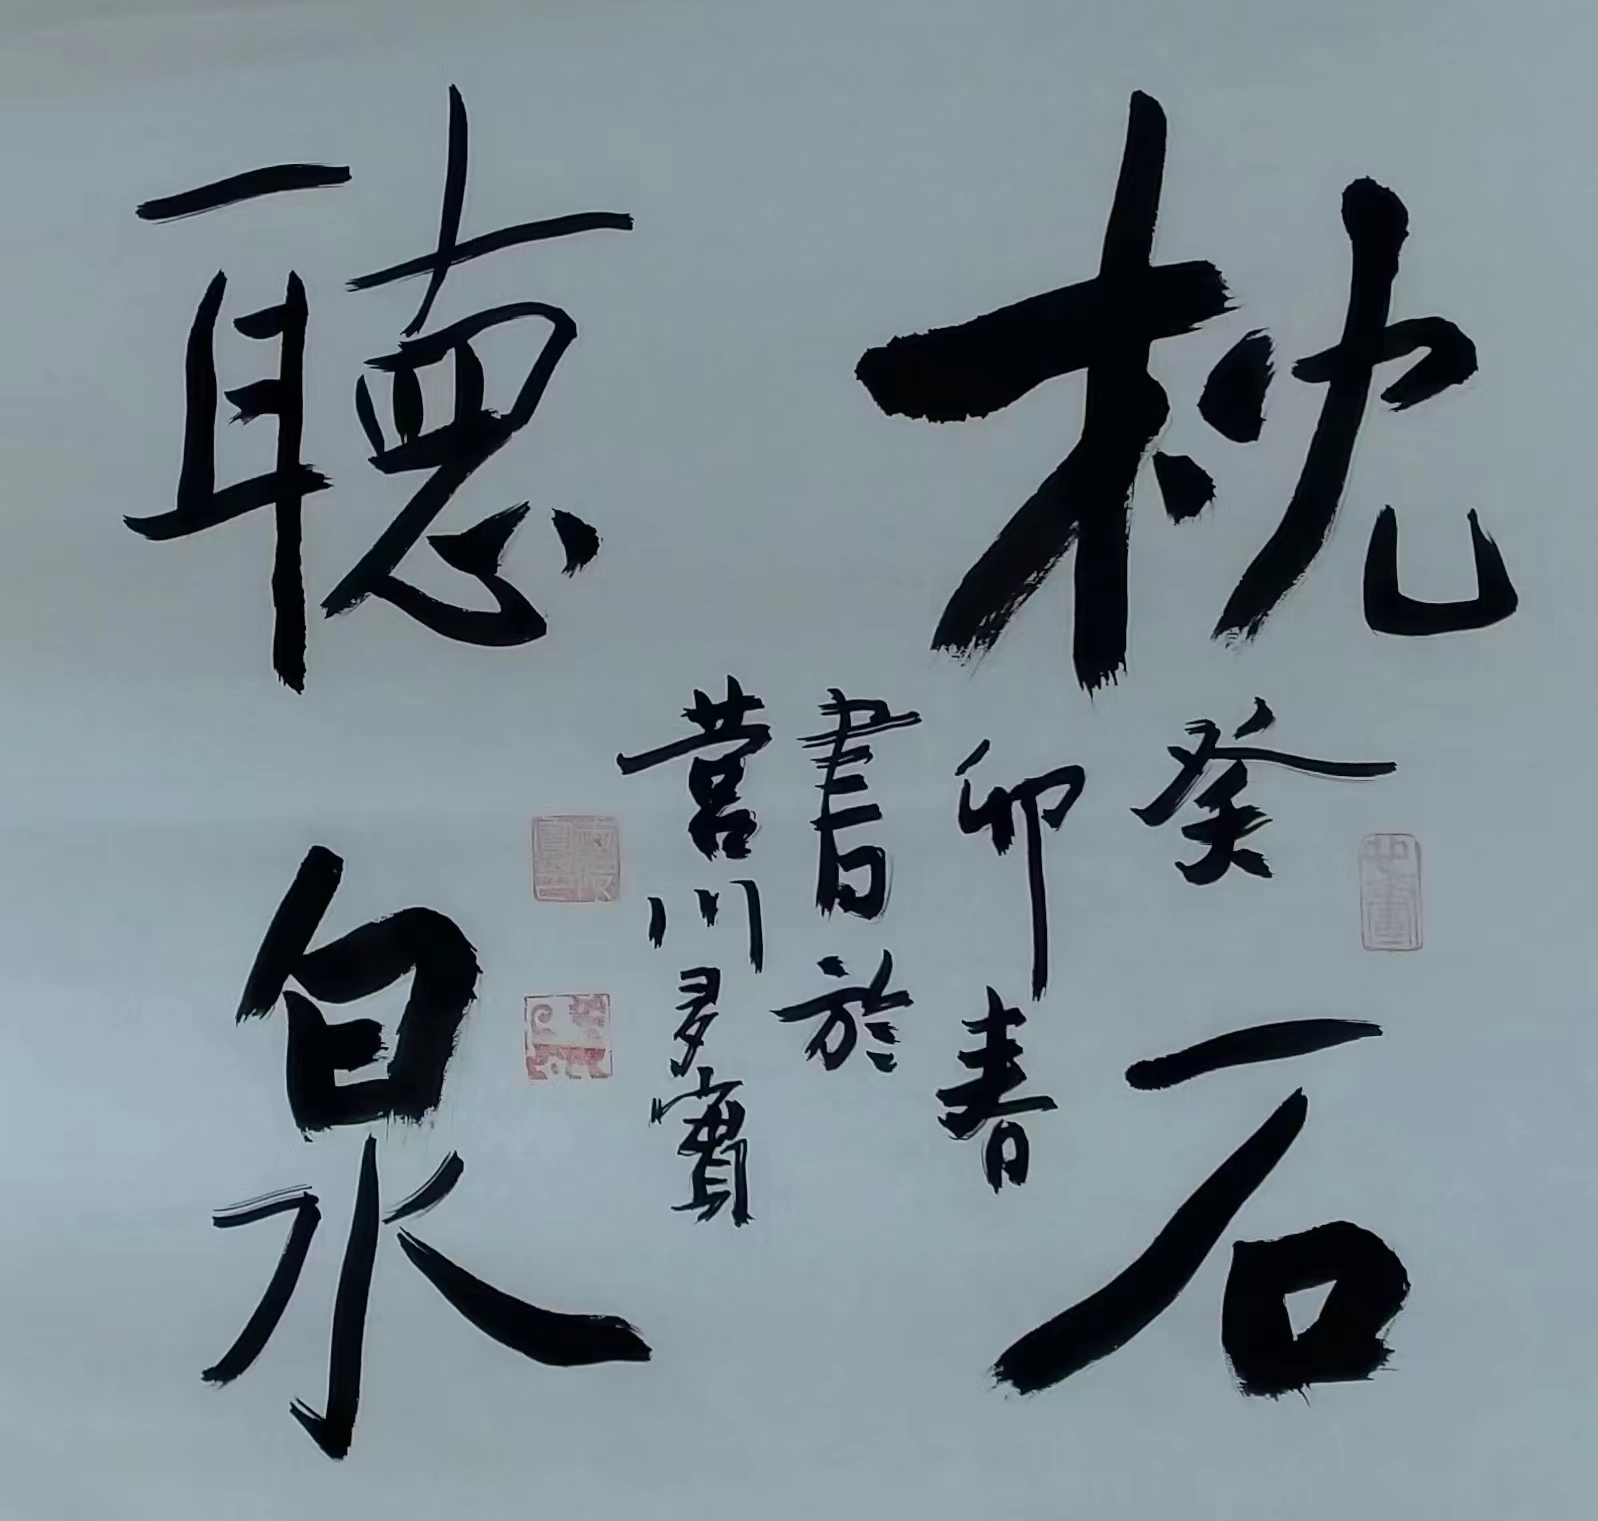 枕石
聽泉
癸
卯春
書於
營川多寶